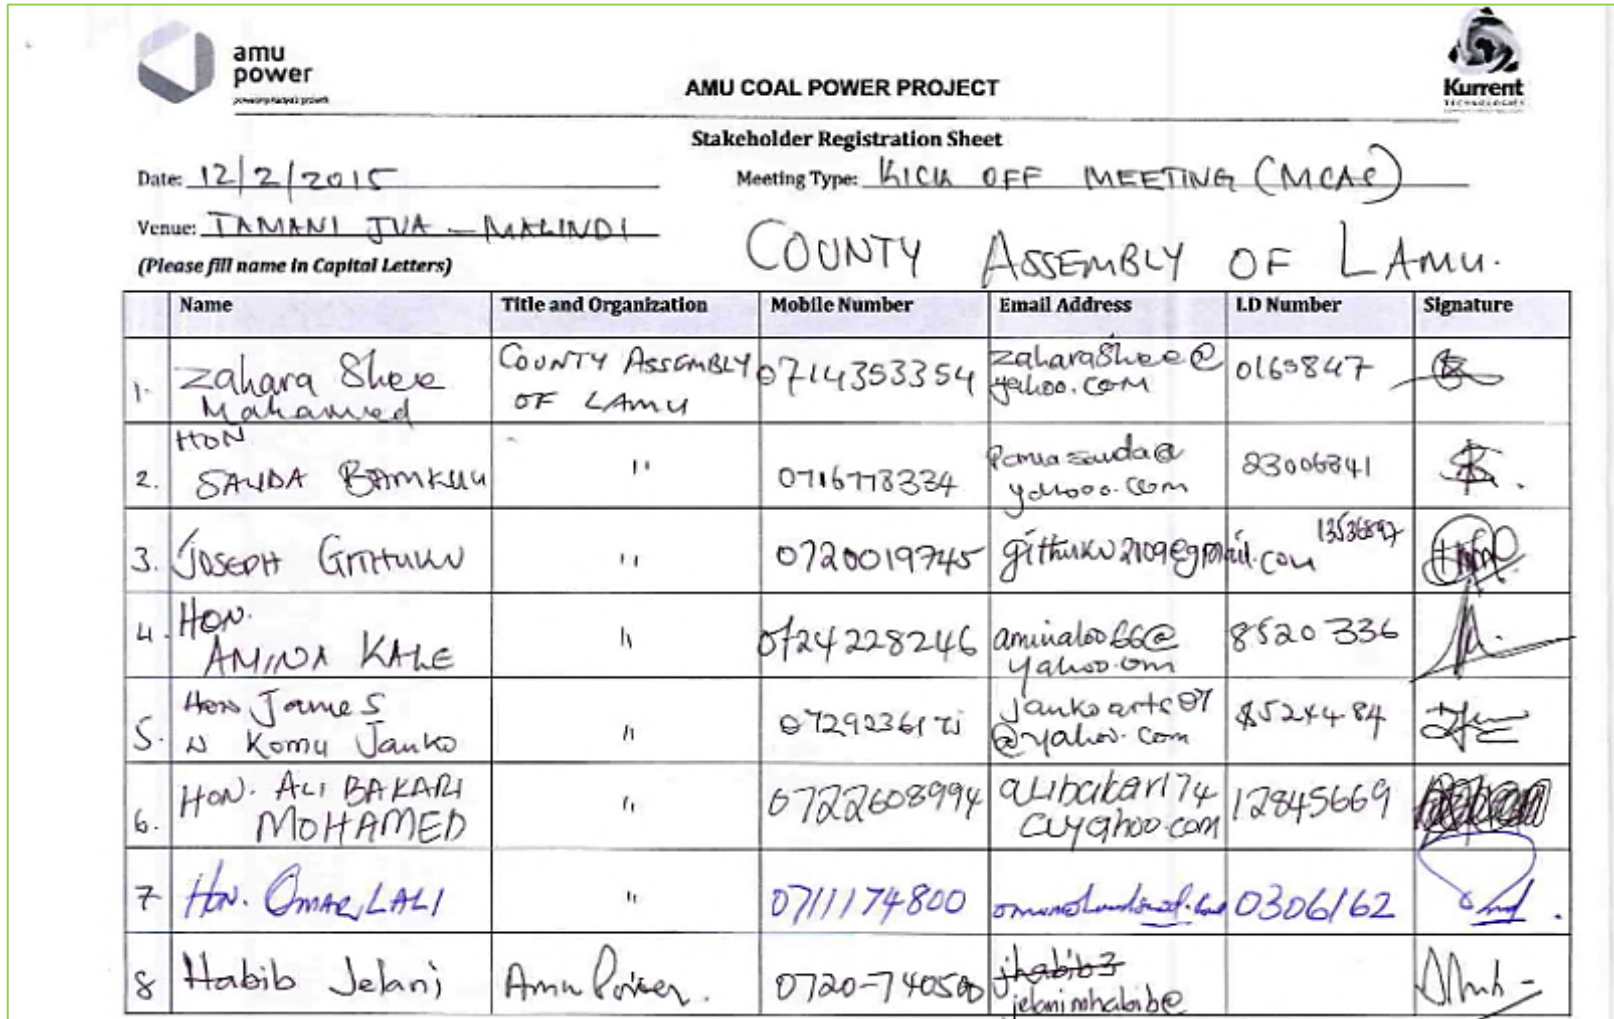 amu
power
AMU COAL POWER PROJECT
Kurrent
TECHNOLOGIES
Stakeholder Registration Sheet
Date: 12/2/2015 Meeting Type: KICK OFF MEETING (MCAs)
Venue: TAMANI JUA - MALINDI
COUNTY ASSEMBLY OF LAMU.
(Please fill name in Capital Letters)
Name Title and Organization Mobile Number Email Address I.D Number Signature
1. Zahara Shee Mohamed COUNTY ASSEMBLY OF LAMU 0714353354 zaharashee@yahoo.com
2. HON SAUDA BAMKUU " 0716778334 23006341
3. JOSEPH GITHUKU " 0720019745 githuku2109@gmail.com 13536897
4. HON. AMINA KALE " 0724228246 8520336
5. Hon James N Komu Janko " jankoarts07@yahoo.com 8524484
6. HON. ALI BAKARI MOHAMED " 0722608994 12845669
7 HON. OMAR LALI " 0711174800 0306162
8 Habib Jelani Amu Power. jhabib3 jelanimhabib@